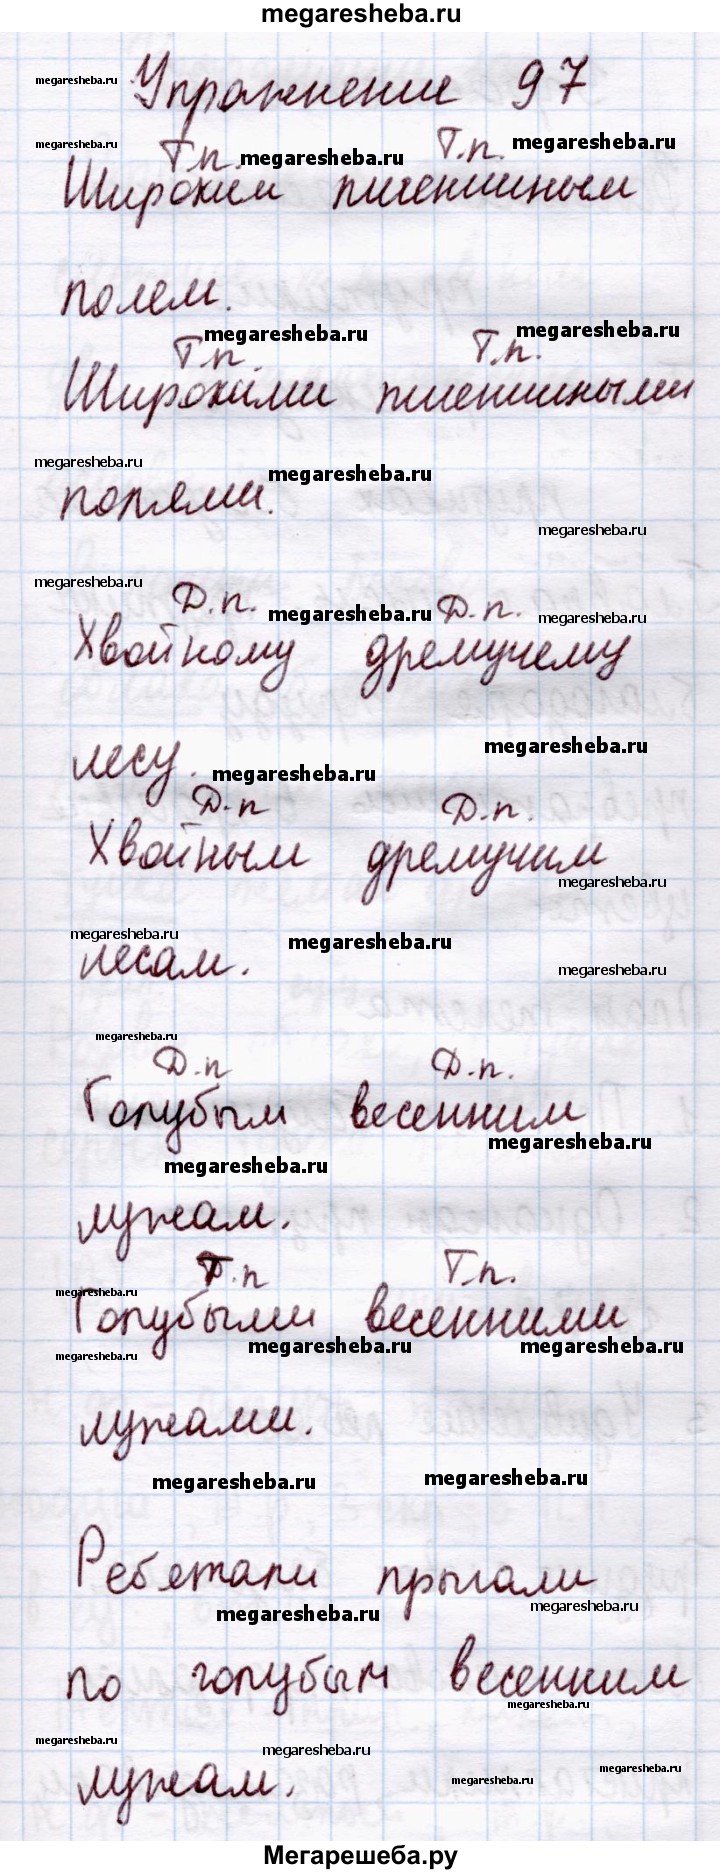 megaresheba.ru
megaresheba.ru
Упражнение 97
megaresheba.ru Т.п. megaresheba.ru Т.п. megaresheba.ru
Широким пшеничным
полем.
megaresheba.ru megaresheba.ru
Т.п. Т.п.
Широкими пшеничными
megaresheba.ru megaresheba.ru
полями.
megaresheba.ru
megaresheba.ru
Д.п. megaresheba.ru Д.п. megaresheba.ru
Хвойному дремучему
megaresheba.ru
лесу. megaresheba.ru
Д.п Д.п.
Хвойным дремучим
megaresheba.ru
megaresheba.ru megaresheba.ru
лесам. megaresheba.ru
megaresheba.ru
Д.п Д.п.
Голубым весенним
megaresheba.ru
megaresheba.ru
лужам.
Т.п Т.п.
megaresheba.ru
Голубыми весенними
megaresheba.ru megaresheba.ru megaresheba.ru
лужами.
megaresheba.ru megaresheba.ru
Ребетали прыгали
megaresheba.ru megaresheba.ru
по голубым весенним
megaresheba.ru
megaresheba.ru megaresheba.ru
лужам. megaresheba.ru megaresheba.ru
Мегарешеба.ру